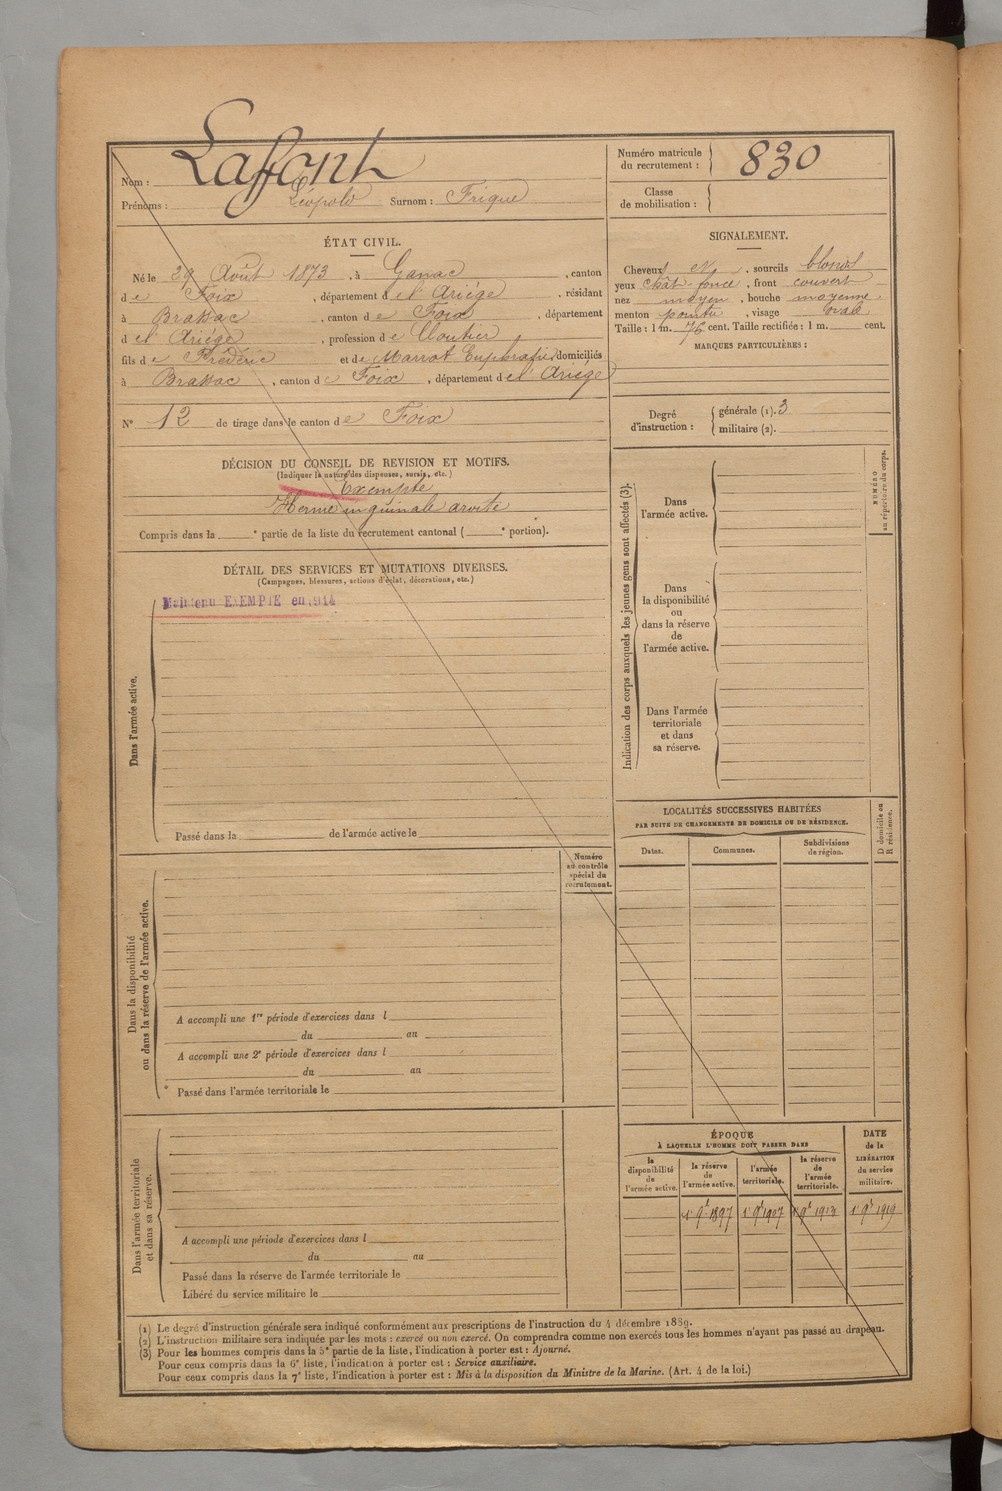 Nom : Laffont
Prénoms : Léopold Surnom : Frique
Numéro matricule
du recrutement : 830
Classe
de mobilisation :
ÉTAT CIVIL.
Né le 29 Août 1873, à Ganac, canton
de Foix, département de l'Ariége, résidant
à Brassac, canton de Foix, département
de l'Ariége, profession de Cloutier
fils de Frédéric et de Marrot Euphrasie domiciliés
à Brassac, canton de Foix, département de l'Ariége
N° 12 de tirage dans le canton de Foix
SIGNALEMENT.
Cheveux et, sourcils blonds
yeux chât foncé, front couvert
nez moyen, bouche moyenne
menton pointu, visage ovale
Taille : 1 m. 76 cent. Taille rectifiée : 1 m. cent.
MARQUES PARTICULIÈRES :
Degré
d'instruction :
générale (1). 3
militaire (2).
DÉCISION DU CONSEIL DE REVISION ET MOTIFS.
(Indiquer la nature des dispenses, sursis, etc.)
Exempté
Hernie inguinale droite
Compris dans la e partie de la liste du recrutement cantonal ( e portion).
DÉTAIL DES SERVICES ET MUTATIONS DIVERSES.
(Campagnes, blessures, actions d'éclat, décorations, etc.)
Maintenu EXEMPTE en 1914
Dans l'armée active.
Passé dans la de l'armée active le
Indication des corps auxquels les jeunes gens sont affectés (3).
Dans
l'armée active.
Dans
la disponibilité
ou
dans la réserve
de
l'armée active.
Dans l'armée
territoriale
et dans
sa réserve.
NUMÉRO
au répertoire du corps.
LOCALITÉS SUCCESSIVES HABITÉES
PAR SUITE DE CHANGEMENTS DE DOMICILE OU DE RÉSIDENCE.
D domicile ou
R résidence.
Dates. Communes. Subdivisions
de région.
Numéro
au contrôle
spécial du
recrutement.
Dans la disponibilité
ou dans la réserve de l'armée active.
A accompli une 1re période d'exercices dans l
du au
A accompli une 2e période d'exercices dans l
du au
Passé dans l'armée territoriale le
Dans l'armée territoriale
et dans sa réserve.
A accompli une période d'exercices dans l
du au
Passé dans la réserve de l'armée territoriale le
Libéré du service militaire le
ÉPOQUE
À LAQUELLE L'HOMME DOIT PASSER DANS
la
disponibilité
de
l'armée active.
la réserve
de
l'armée active.
l'armée
territoriale.
la réserve
de
l'armée
territoriale.
DATE
de la
LIBÉRATION
du service
militaire.
1er 9bre 1897 1er 9bre 1907 1er 9bre 1913 1er 9bre 1919
(1) Le degré d'instruction générale sera indiqué conformément aux prescriptions de l'instruction du 4 décembre 1889.
(2) L'instruction militaire sera indiquée par les mots : exercé ou non exercé. On comprendra comme non exercés tous les hommes n'ayant pas passé au drapeau.
(3) Pour les hommes compris dans la 5e partie de la liste, l'indication à porter est : Ajourné.
Pour ceux compris dans la 6e liste, l'indication à porter est : Service auxiliaire.
Pour ceux compris dans la 7e liste, l'indication à porter est : Mis à la disposition du Ministre de la Marine. (Art. 4 de la loi.)